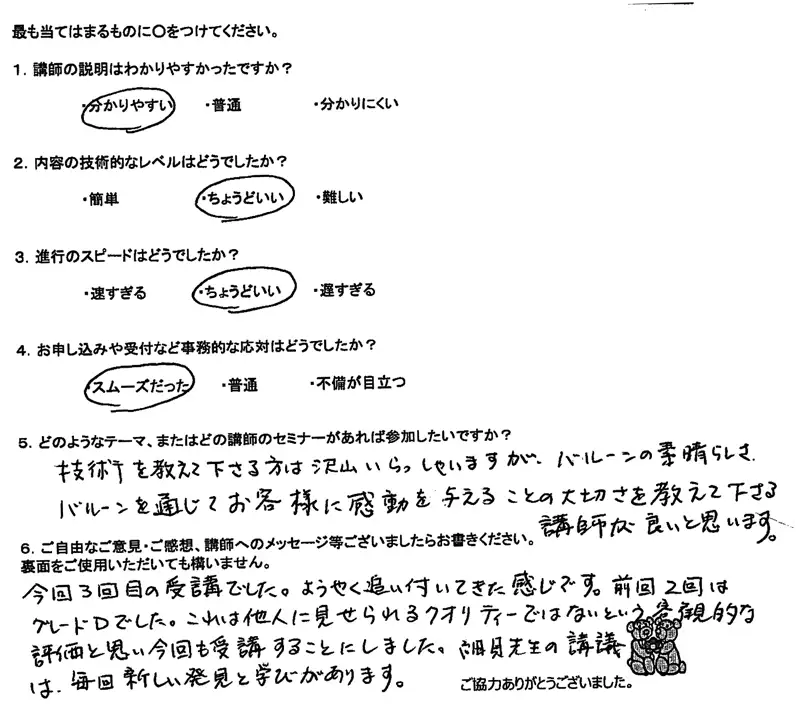 最も当てはまるものに〇をつけてください。
1. 講師の説明はわかりやすかったですか?
・分かりやすい ・普通 ・分かりにくい
2. 内容の技術的なレベルはどうでしたか?
・簡単 ・ちょうどいい ・難しい
3. 進行のスピードはどうでしたか?
・速すぎる ・ちょうどいい ・遅すぎる
4. お申し込みや受付など事務的な応対はどうでしたか?
・スムーズだった ・普通 ・不備が目立つ
5. どのようなテーマ、またはどの講師のセミナーがあれば参加したいですか?
技術を教えて下さる方は沢山いらっしゃいますが、バルーンの素晴らしさ
バルーンを通じてお客様に感動を与えることの大切さを教えて下さる
講師が良いと思います。
6. ご自由なご意見・ご感想、講師へのメッセージ等ございましたらお書きください。
裏面をご使用いただいても構いません。
今回3回目の受講でした。ようやく追い付いてきた感じです。前回2回は
グレードDでした。これは他人に見せられるクオリティーではないという客観的な
評価と思い今回も受講することにしました。細貝先生の講議
は、毎回新しい発見と学びがあります。
ご協力ありがとうございました。